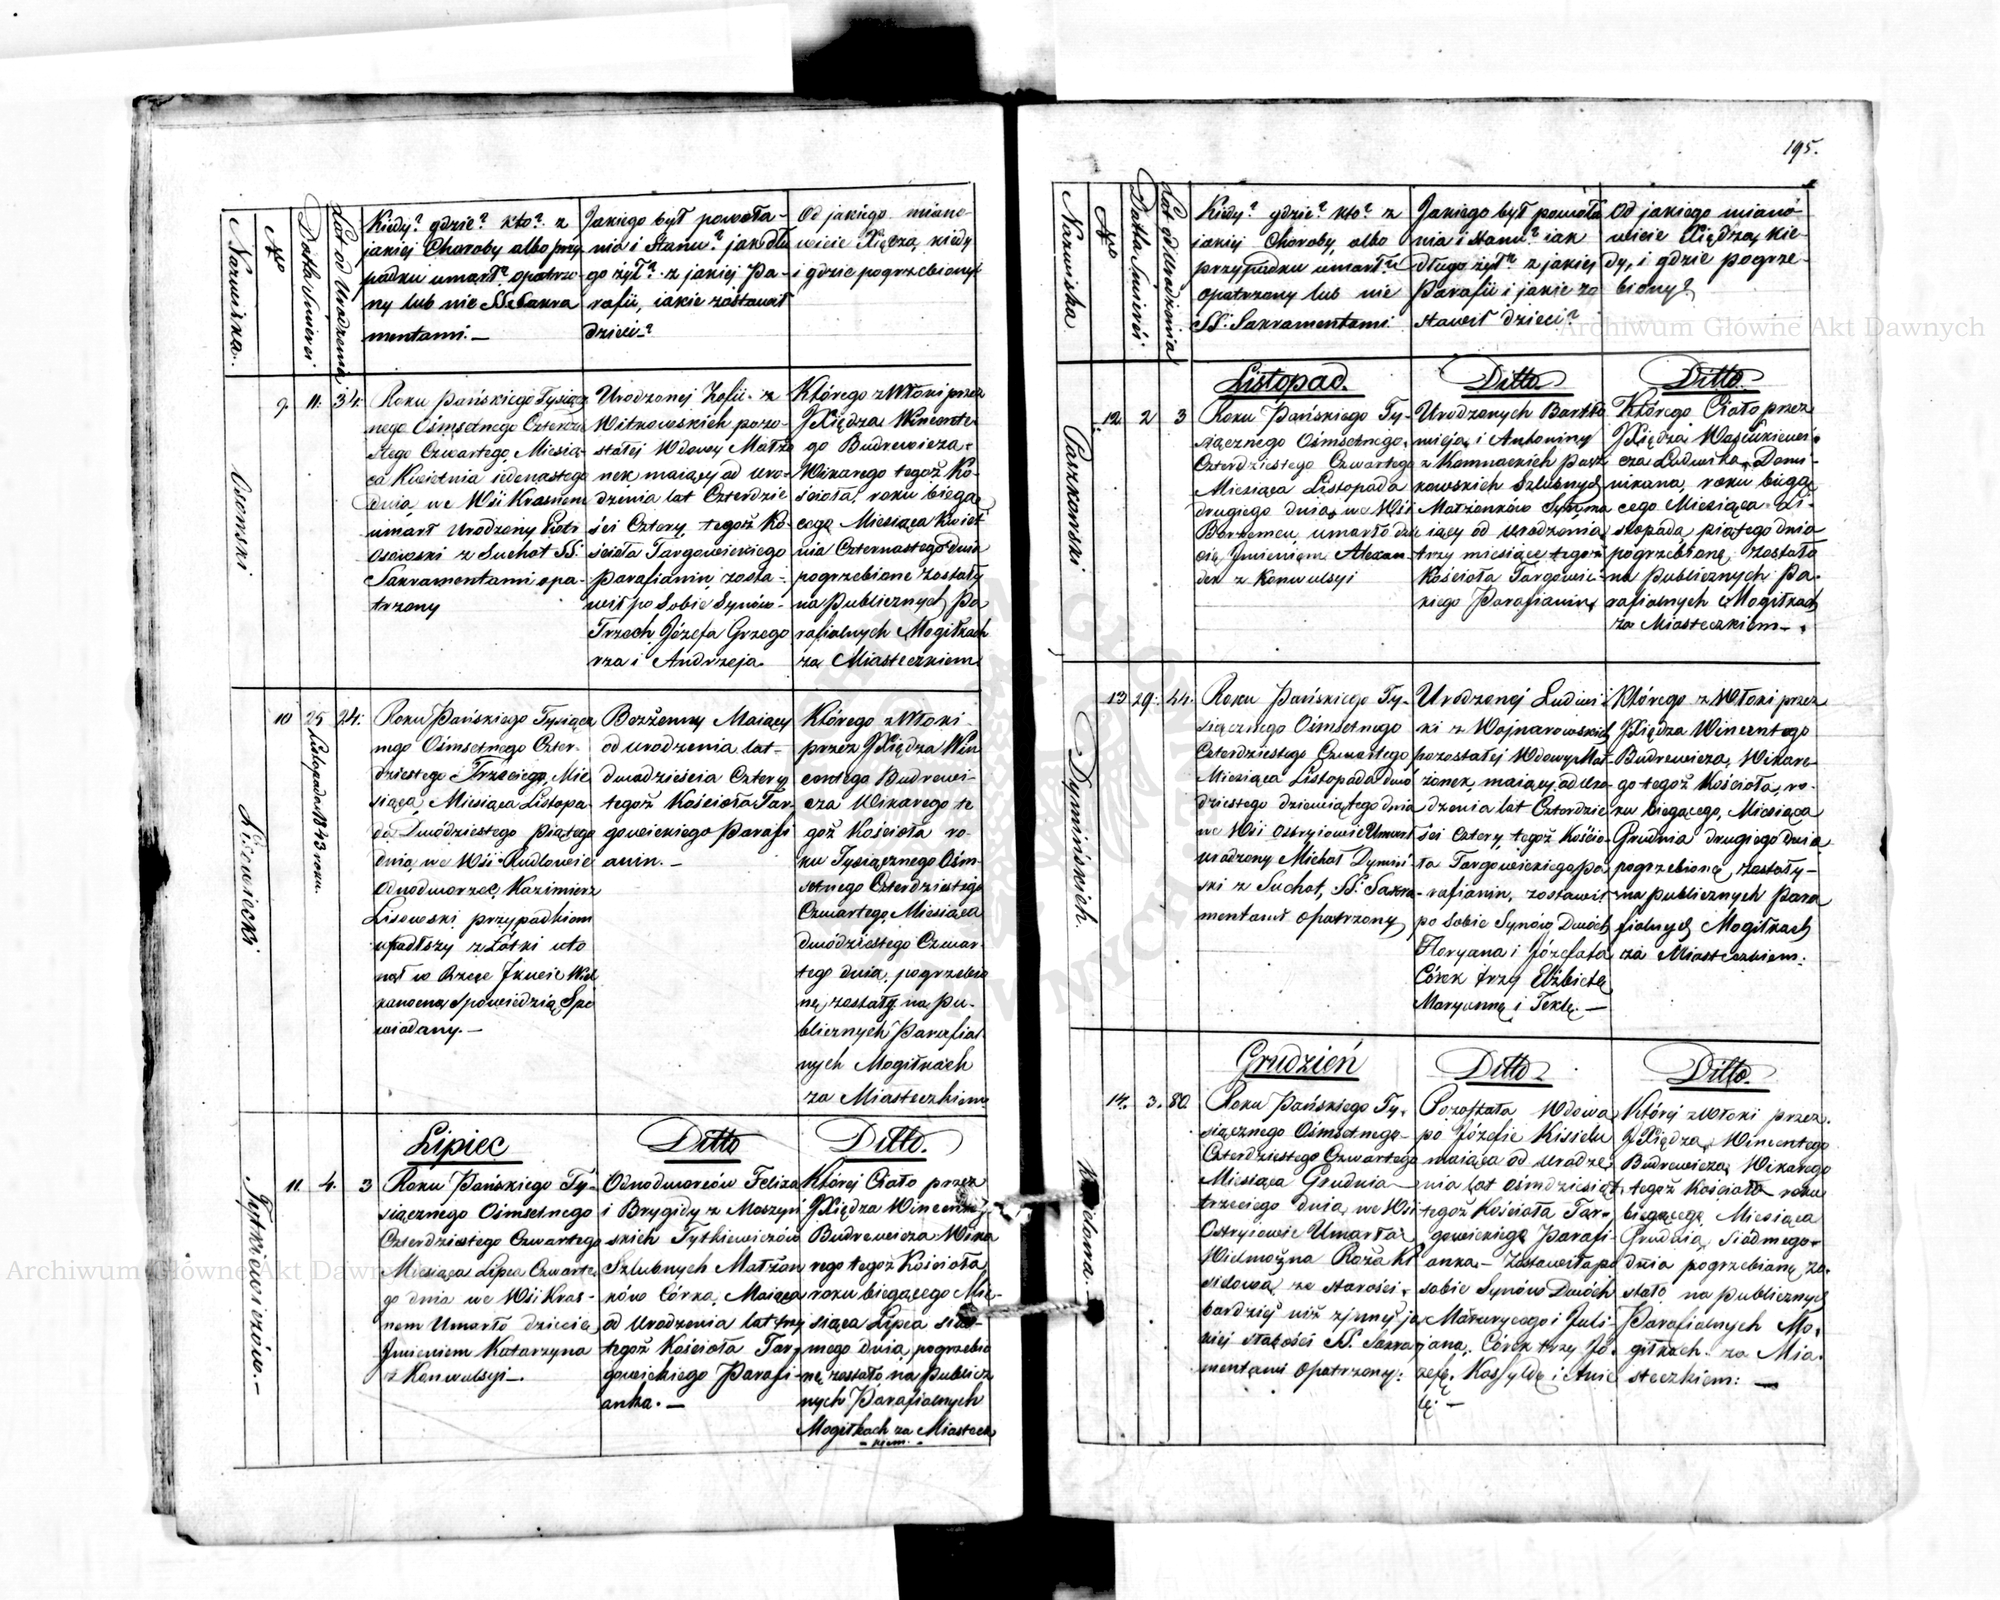 195.
Nazwiska.
Nro
Datta Śmierci
Lat od Urodzenia
Kiedy? gdzie? kto? z
jakiej Choroby albo przy
padku umarł? opatrzo-
ny lub nie SS. Sakra
mentami.—
Jakiego był powoła-
nia i Stanu? jak dłu
go żył? z jakiej Pa-
rafii, iakie zostawił
dzieci?
Od jakiego miano-
wicie Xiędza, kiedy
i gdzie pogrzebiony?
Osowski
9. 11. 34.
Roku Pańskiego Tysiącz
nego Óśmsetnego Czterdzie
stego Czwartego Miesią-
ca Kwietnia iedenastego
dnia, we Wsi Krasnem
umarł Urodzony Piotr
Osowski z Suchot SS.
Sakramentami opa-
trzony
Urodzonej Zofii z
Witkowskich pozo-
stałej Wdowy Małżo
nek maiący od uro-
dzenia lat Czterdzie
ści Cztery, tegoż Ko-
ścioła Targowickiego
Parafianin, zosta-
wił po Sobie Synów-
Trzech, Józefa Grzego
rza i Andrzeja.
Którego zwłoki przez
JXiędza Wincente-
go Budrewicza,
Wikarego tegoż Ko-
ścioła, roku bieżą
cego Miesiąca Kwiet
nia Czternastego dnia
pogrzebione zostały
na Publicznych Pa
rafialnych Mogiłkach
za Miasteczkiem
Lisowiecki
10 25 Listopada 1843 roku. 24.
Roku Pańskiego Tysiącz
nego Óśmsetnego Czter-
dziestego Trzeciego, Mie
siąca Miesiąca Listopa-
da Dwódziestego piątego
dnia, we Wsi Rudlowie
Odnodworzec Kazimierz
Lisowski przypadkiem
upadłszy z Łótki uto
nął w Rzece Ikwie Wiel
kanocną Spowiedzią Spo
wiadany.—
Bezżenny Maiący
od urodzenia lat-
dwadzieścia Cztery
tegoż Kościoła Tar-
gowickiego Parafi
anin.—
Którego zwłoki-
przez JXiędza Win
centego Budrewi-
cza Wikarego te
goż Kościoła ro-
ku Tysiącznego Óśm-
setnego Czterdziestego
Czwartego Miesiąca
dwódziestego Czwar-
tego dnia, pogrzebio
ne, zostały na pu-
blicznych Parafial-
nych Mogiłkach
za Miasteczkiem
Tytkiewiczów.—
Lipiec
Ditto
Ditto.
11. 4. 3
Roku Pańskiego Ty-
siącznego Óśmsetnego
Czterdziestego Czwartego
Miesiąca Lipca Czwarte
go dnia we Wsi Kras-
nem Umarło dziecie,
Imieniem Katarzyna
z Konwulsyi—.
Odnodworców Felixa
i Brygidy z Moszyń
skich Tytkiewiczów
Szlubnych Małżon
ków Córka, Maiąca
od Urodzenia lat trzy
tegoż Kościoła Tar-
gowickiego Parafi-
anka.—
Której Ciało przez
JXiędza Wincentego
Budrewicza Wika
rego tegoż Kościoła
roku bieżącego Mie-
siąca Lipca siód-
mego dnia, pogrzebio
ne, zostało, na Publicz
nych Parafialnych
Mogiłkach za Miastecz
-kiem.-
Nazwiska
Nro
Datta Śmierci
Lat od Urodzenia
Kiedy? gdzie? kto? z
jakiej Choroby, albo
przypadku umarł?
opatrzony lub nie
SS. Sakramentami
Jakiego był powoła
nia i stanu? iak
długo żył? z jakiej
Parafii i jakie zo
stawił dzieci?
Od jakiego miano-
wicie Xiędza, kie-
dy, i gdzie pogrze-
biony?
Paszkowski
Listopad.
Ditto
Ditto.
12. 2 3
Roku Pańskiego Ty-
siącznego Óśmsetnego,
Czterdziestego Czwartego
Miesiąca Listopada
drugiego dnia, we Wsi
Borzemcu, umarło dzie
cie, Imieniem Alexan-
der z Konwulsyi
Urodzonych Bartło
mieja, i Antoniny
z Kamnackich Pasz
kowskich Szlubnych
Małżonków Syn, ma
iący od Urodzenia
trzy miesiące tegoż
Kościoła Targowic-
kiego Parafianin,
Którego Ciało przez
JXiędza Wasiukiewi-
cza Ludwika, Domi-
nikana, roku bieżą
cego Miesiąca Li-
stopada, piątego dnia
pogrzebione, zostało
na Publicznych Pa-
rafialnych Mogiłkach
za Miasteczkiem—.
Dymińskich.
13 29. 44.
Roku Pańskiego Ty-
siącznego Óśmsetnego
Czterdziestego Czwartego
Miesiąca Listopada dwó
dziestego dziewiątego dnia
we Wsi Ostryiowie Umarł
urodzony Michał Dymiń-
ski z Suchot, SS. Sakra-
mentami opatrzony
Urodzonej Ludwi
ki z Wojnarowskich
pozostałej Wdowy Mał-
żonek, maiący od Uro-
dzenia lat Czterdzie
ści Cztery, tegoż Kościo-
ła Targowickiego Pa-
rafianin, zostawił
po Sobie Synów Dwóch
Floryana i Józefata
Córek trzy Elżbietę,
Maryannę i Teklę.—
Którego zwłoki przez
JXiędza Wincentego
Budrewicza, Wikare-
go tegoż Kościoła, ro-
ku bieżącego, Miesiąca
Grudnia drugiego dnia,
pogrzebione, zostały-
na publicznych Para
fialnych Mogiłkach
za Miasteczkiem.
Kisidowa.
Grudzień
Ditto.
Ditto.
14. 3. 80.
Roku Pańskiego Ty-
siącznego Óśmsetnego-
Czterdziestego Czwartego
Miesiąca Grudnia-
trzeciego dnia, we Wsi
Ostryiowie Umarła
Wielmożna Róża Ki
sielowa, ze starości,
bardziej niż z innej ja
kiej słabości SS. Sakra
mentami opatrzony:
Pozostała Wdowa
po Józefie Kisielu
maiąca od Urodze-
nia lat ośmdziesiąt,
tegoż Kościoła Tar-
gowickiego Parafi-
anka.- Zostawiła po
sobie Synów Dwóch
Maurycego i Juli-
jana, Córek trzy Jó-
zefę, Kassyldę i Anie
lę.—
Której zwłoki przez
JXiędza, Wincentego
Budrewicza, Wikarego
tegoż Kościoła roku
bieżącego, Miesiąca
Grudnia, Siódmego
dnia pogrzebione, zo-
stało na publicznych
Parafialnych Mo-
giłkach za Mia-
steczkiem:—
Archiwum Główne Akt Dawnych
Archiwum Główne Akt Dawnych